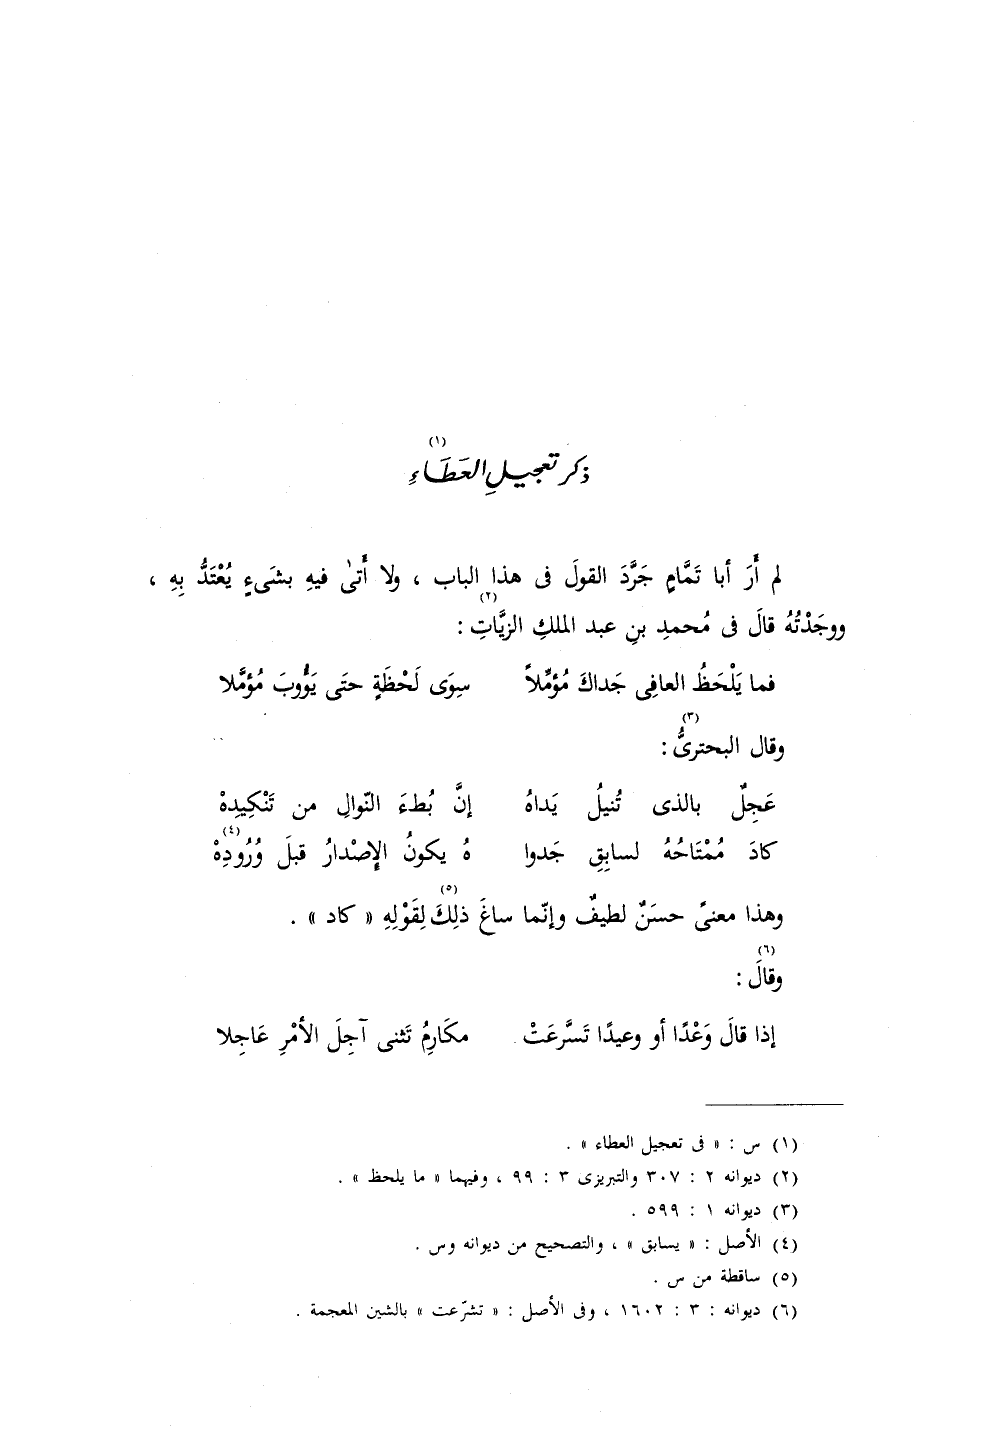 (١)
ذكر تعجيلِ العَطَاءِ
لم أَرَ أبا تَمَّامٍ جَرَّدَ القولَ فى هذا الباب ، ولا أَتىٰ فيهِ بشَىءٍ يُعْتَدُّ بِهِ ،
ووجَدْتُهُ قالَ فى مُحمدِ بنِ عبد الملكِ الزيَّاتِ (٢) :
فما يَلْحَظُ العافِى جَداكَ مُؤمِّلاً سِوَى لَحْظَةٍ حتَى يَؤُوبَ مُؤمَّلا
وقال البحترىُّ (٣) :
عَجِلٌ بالذى تُنيلُ يَداهُ إنَّ بُطءَ النّوالِ من تَنْكِيدِهْ
كادَ مُمْتَاحُهُ لسابِقِ جَدوا هُ يكونُ الإصْدارُ قبلَ وُرُودِهْ (٤)
وهذا معنىً حسَنٌ لطيفٌ وإنّما ساغَ ذلِكَ (٥) لِقَوْلِهِ « كاد » .
وقالَ (٦) :
إذا قالَ وَعْدًا أو وعيدًا تَسَّرعَتْ مكَارِمُ تَثنى آجِلَ الأمْرِ عَاجِلا
(١) س : « فى تعجيل العطاء » .
(٢) ديوانه ٢ : ٣٠٧ والتبريزى ٣ : ٩٩ ، وفيهما « ما يلحظ » .
(٣) ديوانه ١ : ٥٩٩ .
(٤) الأصل : « يسابق » ، والتصحيح من ديوانه وس .
(٥) ساقطة من س .
(٦) ديوانه : ٣ : ١٦٠٢ ، وفى الأصل : « تشرّعت » بالشين المعجمة .